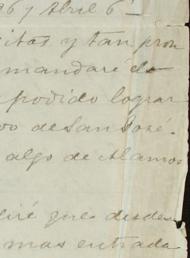 67 Abril 6
itas y tan pron
mandaré do
podido lograr
vo de San José.
algo de Alamos
diré que desde
mas entrada